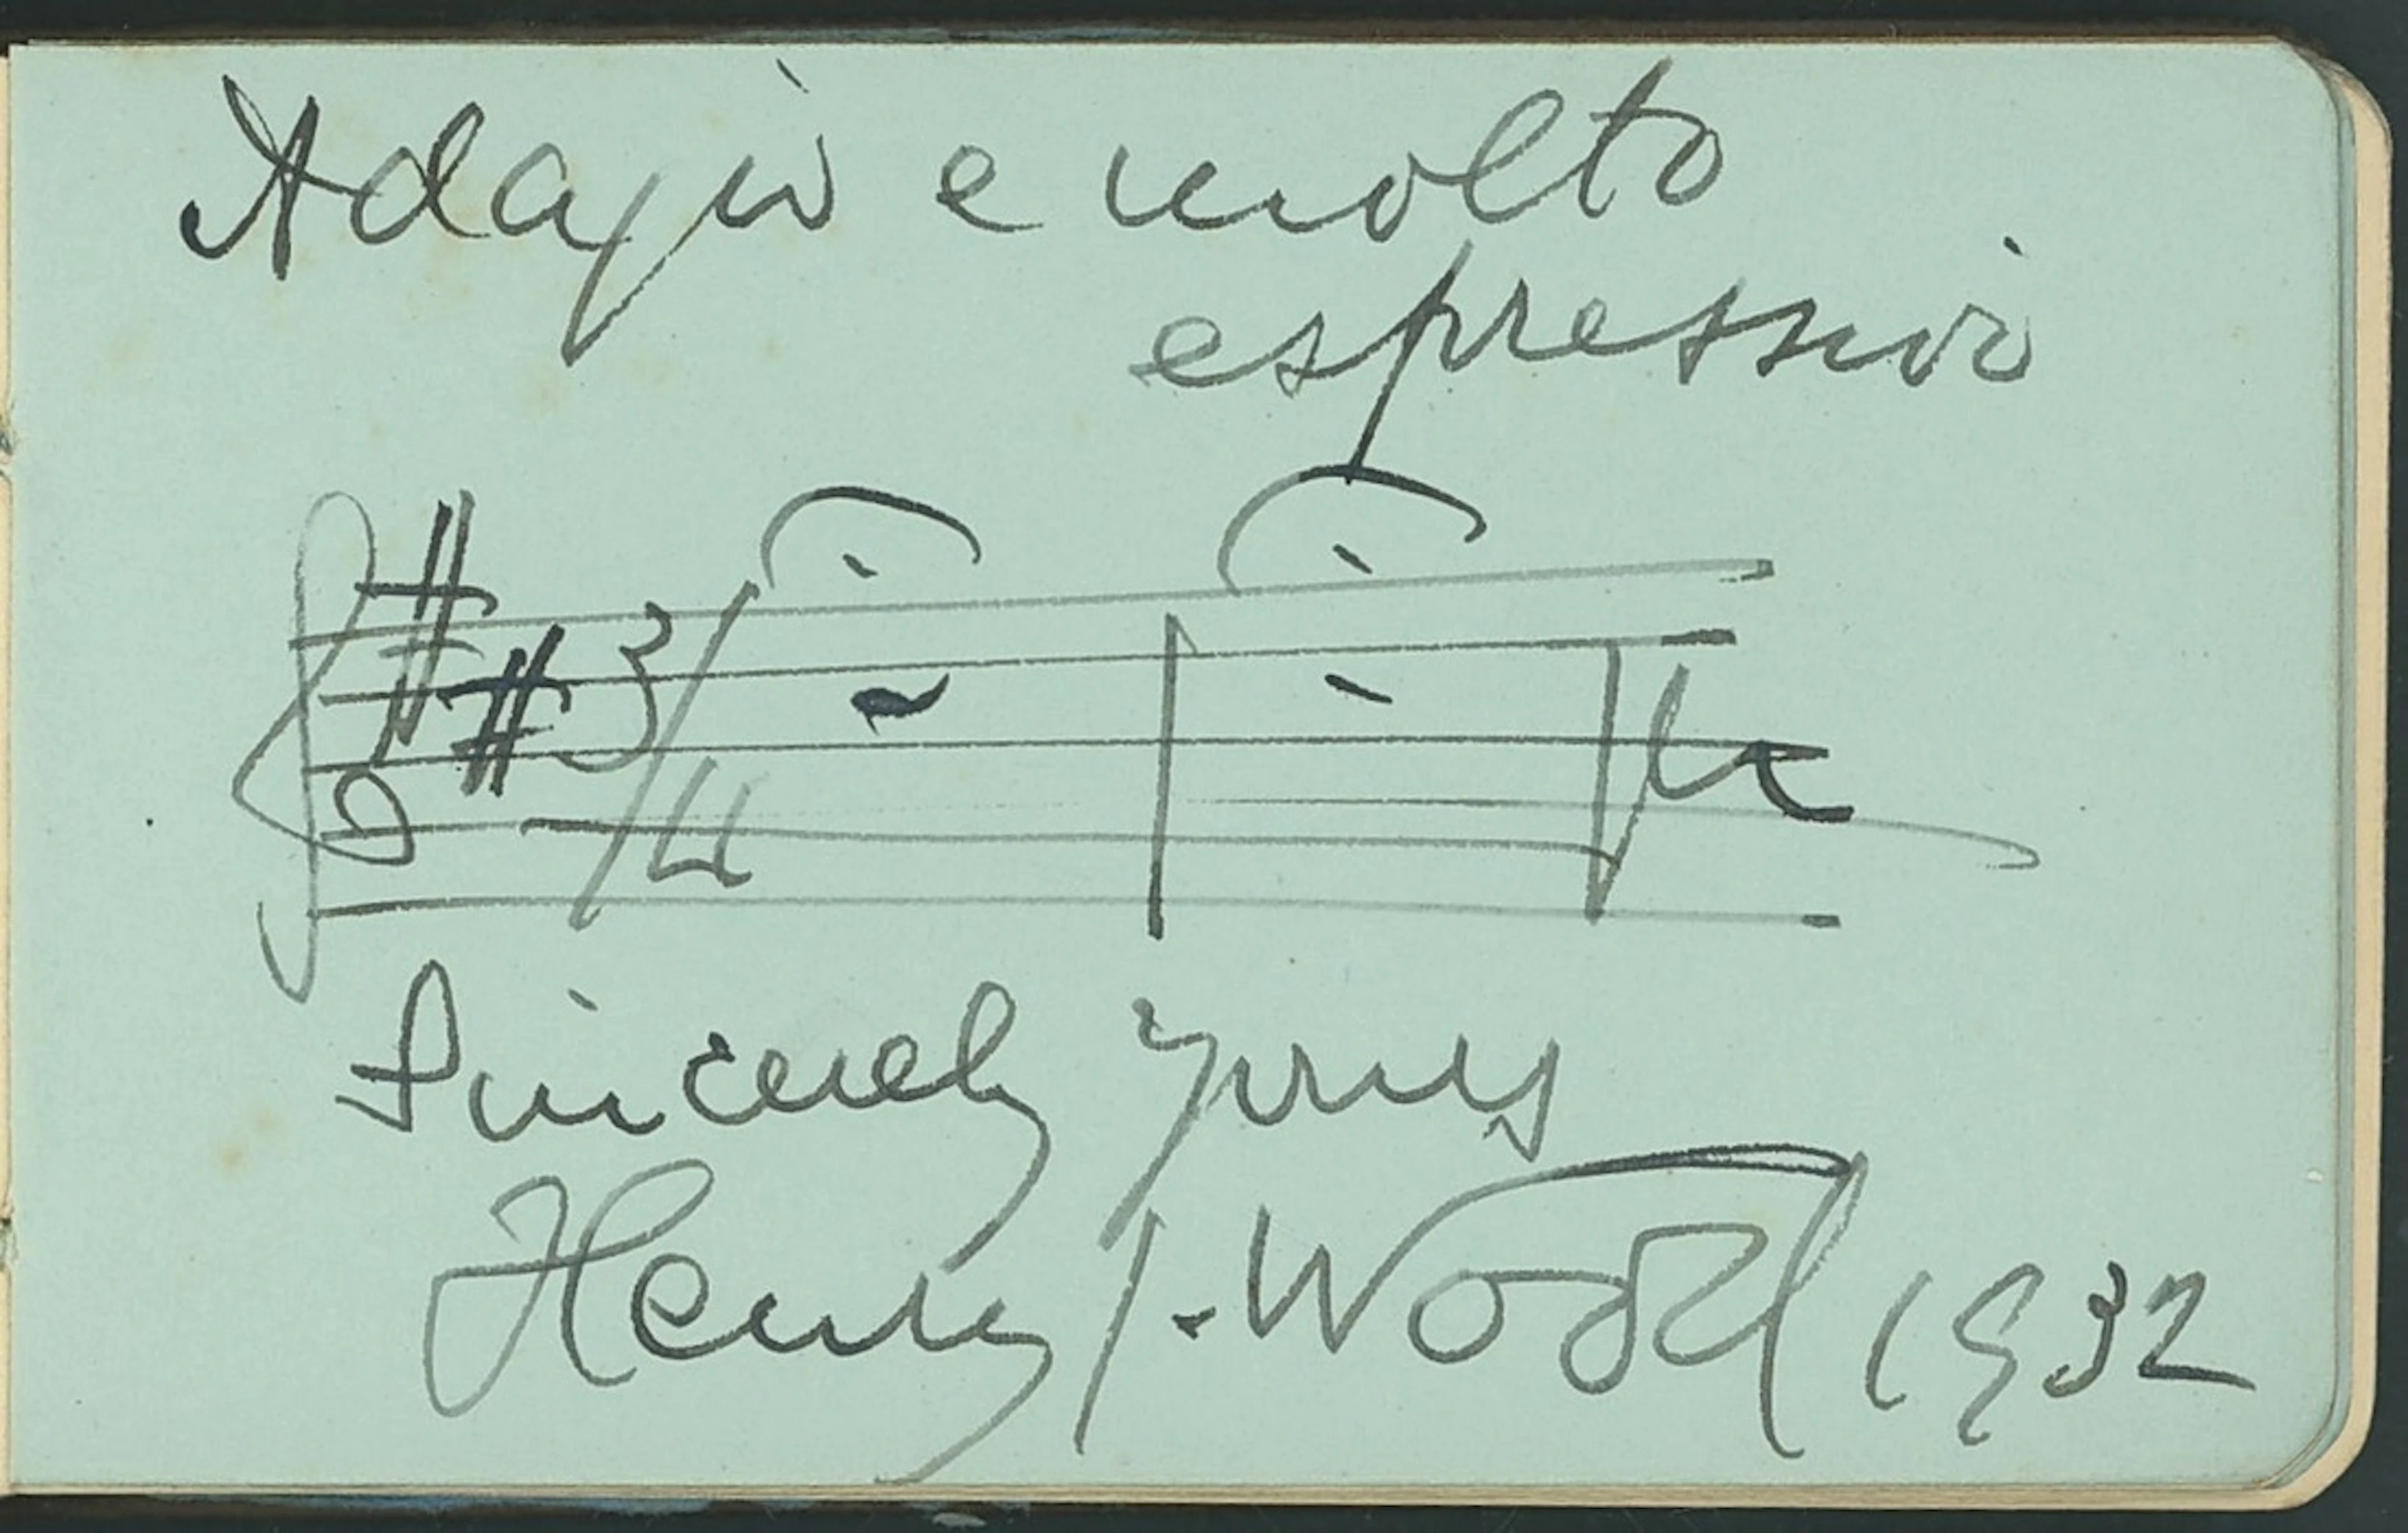 Adagio e molto
espressivo
3/4
Sincerely Yours
Henry J. Wood 1932